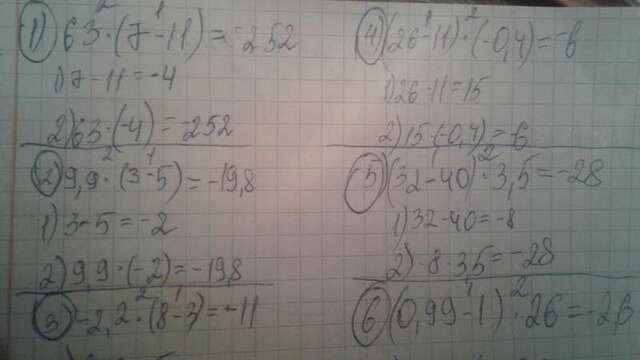 1) 63·(7-11)=-252
1) 7-11=-4
2) 63·(-4)=-252
2) 9,9·(3-5)=-19,8
1) 3-5=-2
2) 9,9·(-2)=-19,8
3) -2,2·(8-3)=-11
4) (26-11)·(-0,4)=-6
1) 26-11=15
2) 15·(-0,4)=-6
5) (32-40)·3,5=-28
1) 32-40=-8
2) -8·3,5=-28
6) (0,99-1)·26=-2,6